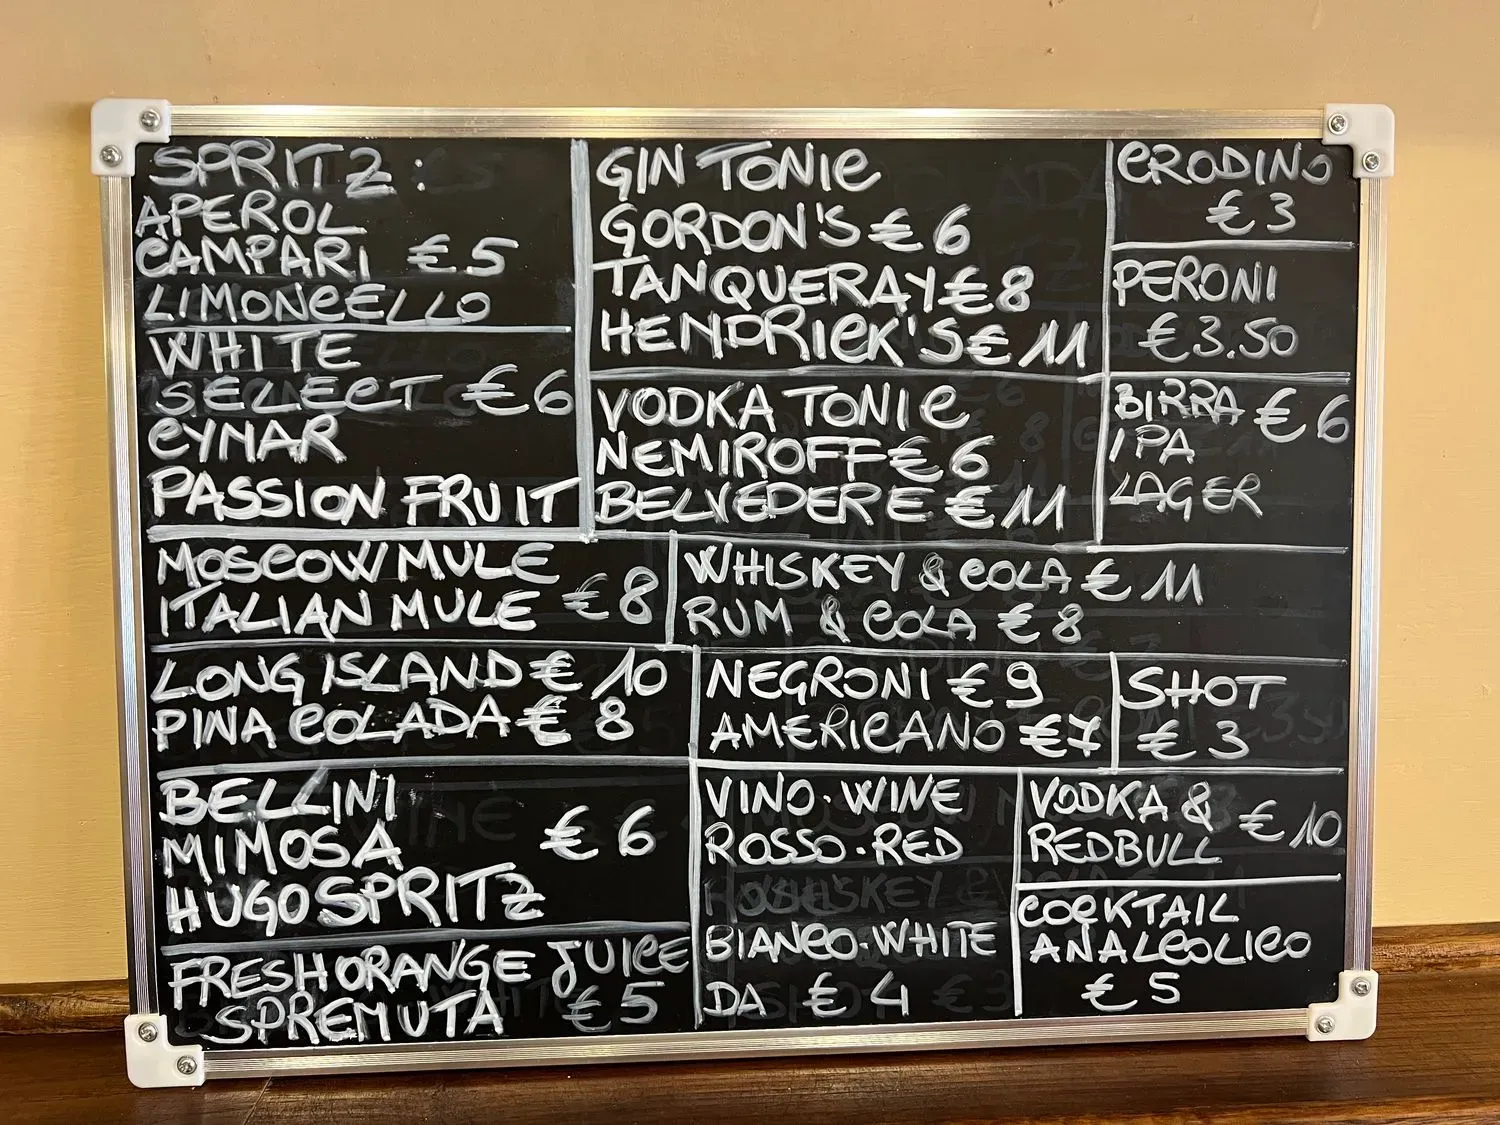 SPRITZ:
APEROL
CAMPARI €5
LIMONCELLO
WHITE
SELECT €6
CYNAR
PASSION FRUIT
GIN TONIC
GORDON'S €6
TANQUERAY €8
HENDRICK'S €11
VODKA TONIC
NEMIROFF €6
BELVEDERE €11
CRODINO
€3
PERONI
€3.50
BIRRA €6
IPA
LAGER
MOSCOW MULE
ITALIAN MULE €8
WHISKEY & COLA €11
RUM & COLA €8
LONG ISLAND €10
PINA COLADA €8
NEGRONI €9
AMERICANO €7
SHOT
€3
BELLINI
MIMOSA €6
HUGO SPRITZ
FRESH ORANGE JUICE
SPREMUTA €5
VINO·WINE
ROSSO·RED
BIANCO·WHITE
DA €4
VODKA & €10
REDBULL
COCKTAIL
ANALCOLICO
€5